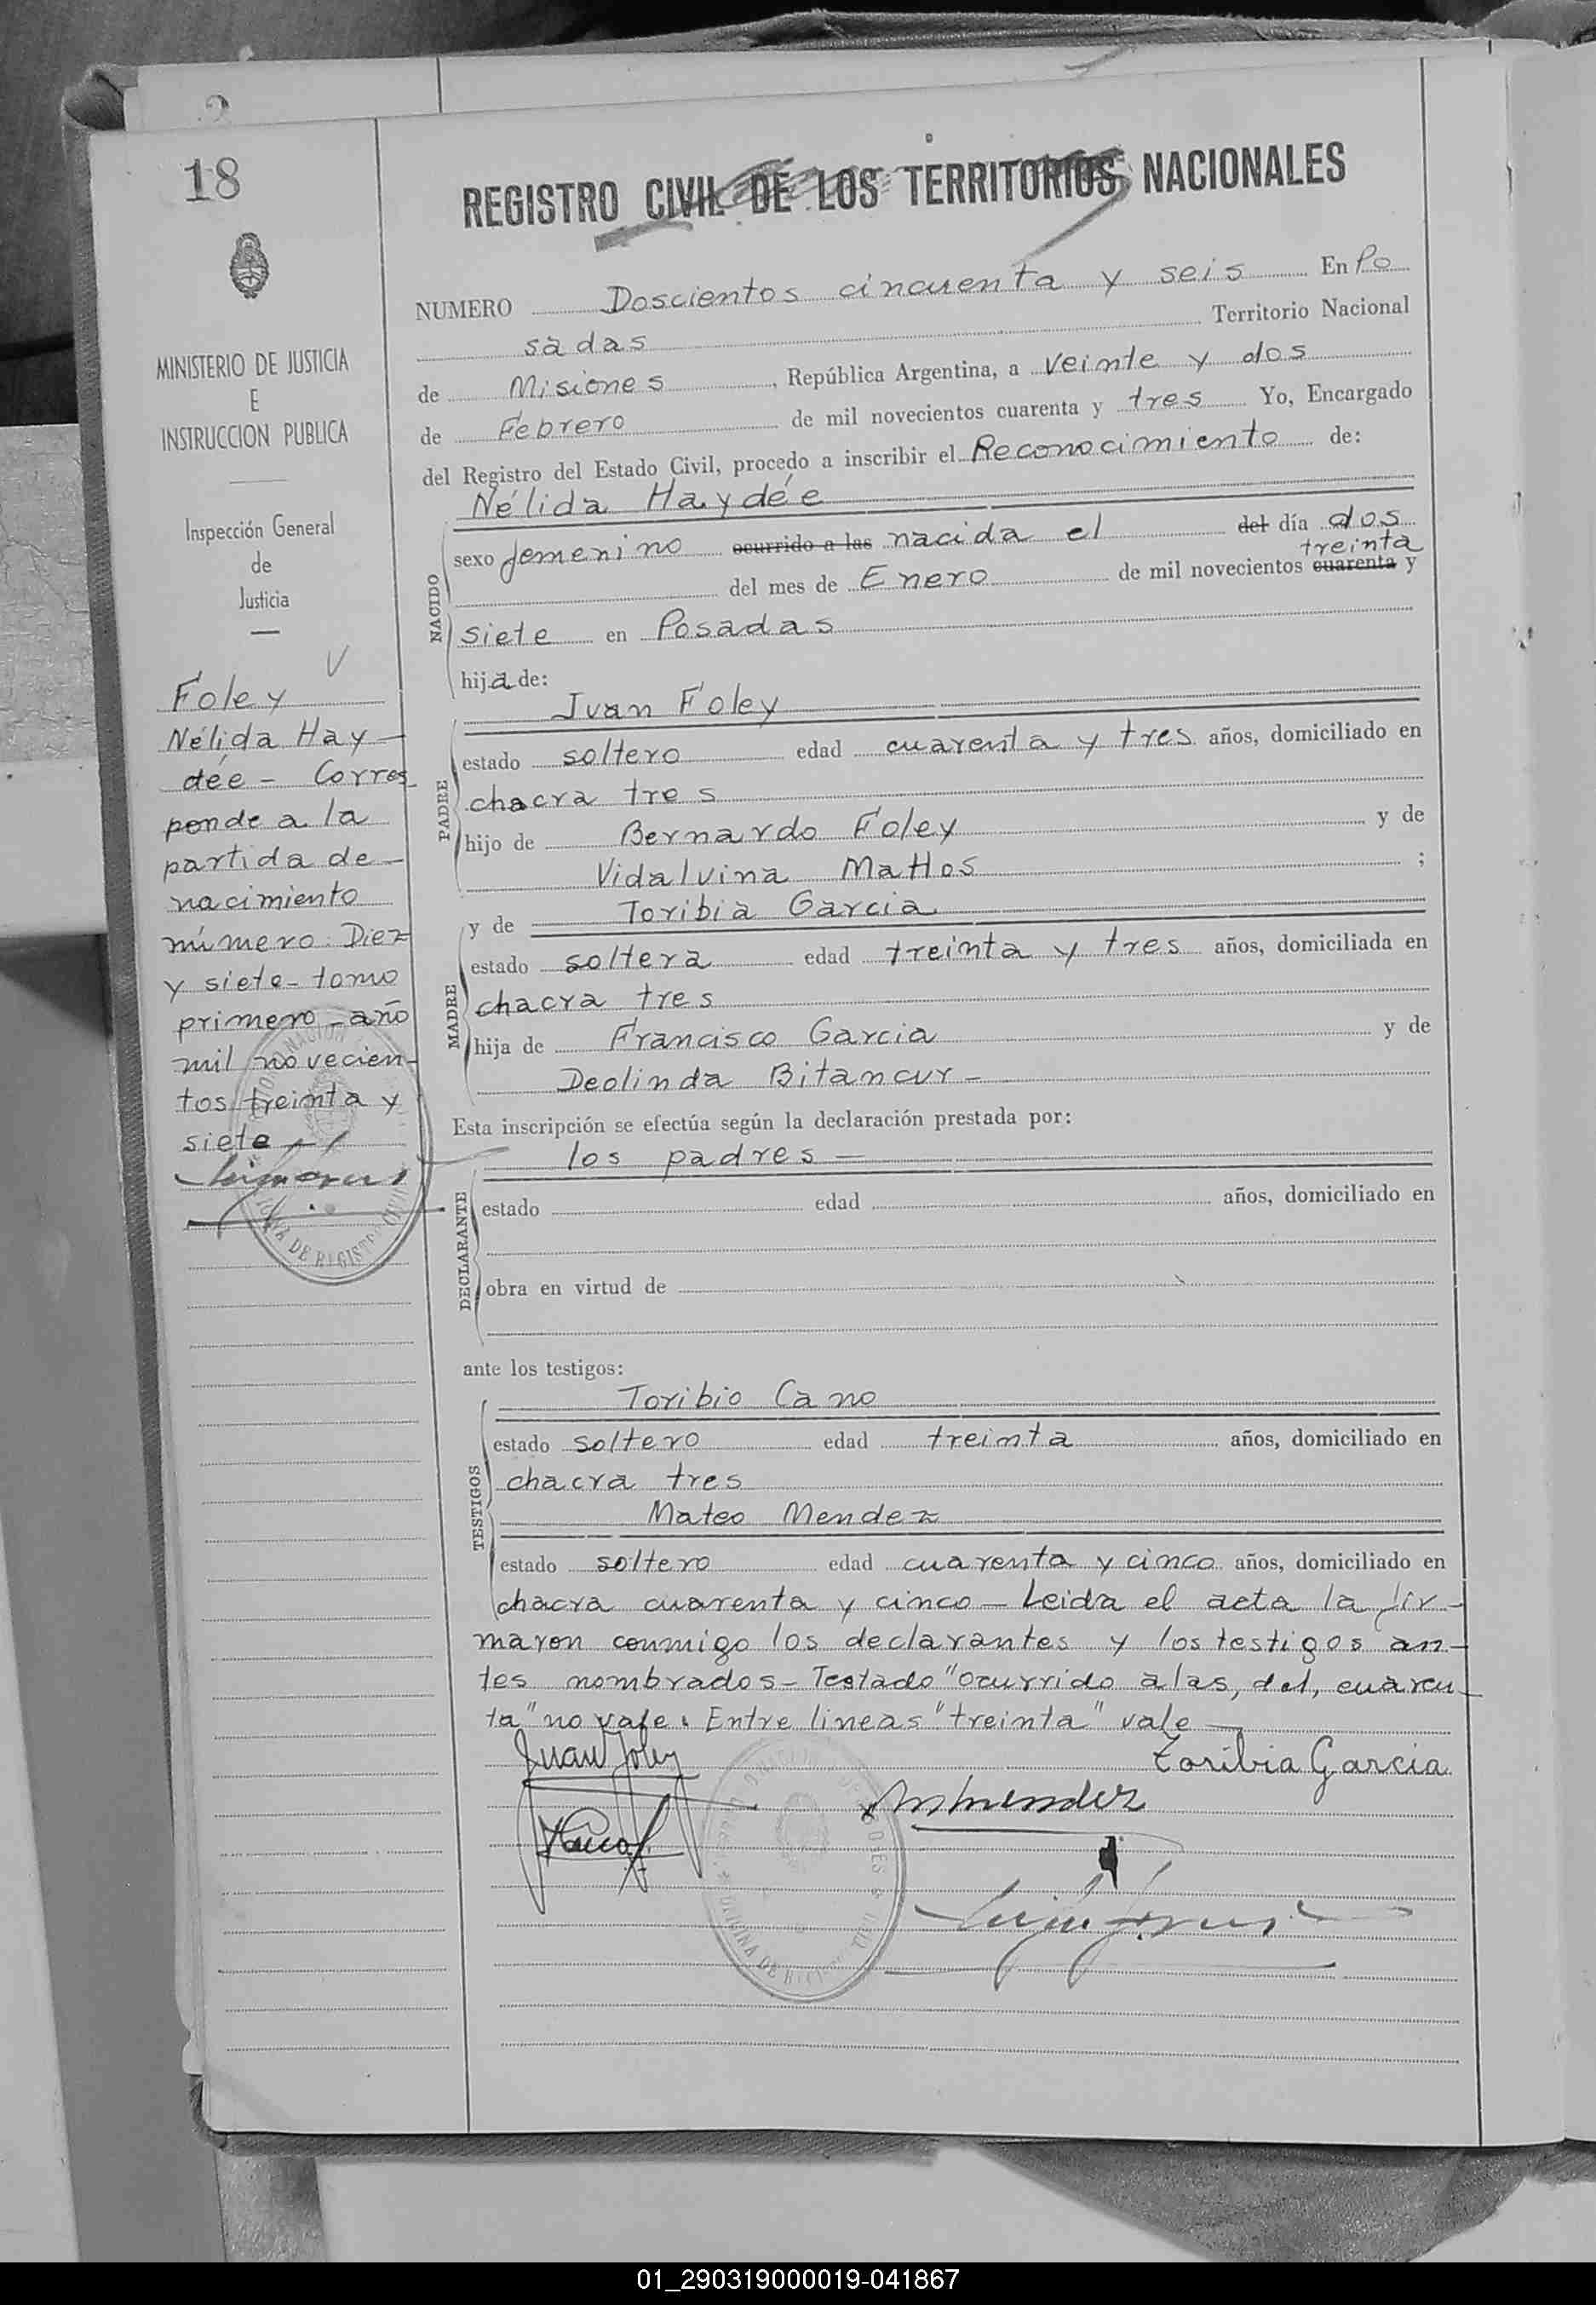 18
REGISTRO CIVIL DE LOS TERRITORIOS NACIONALES
NUMERO Doscientos cincuenta y seis En Po
sadas Territorio Nacional
de Misiones, República Argentina, a veinte y dos
de Febrero de mil novecientos cuarenta y tres Yo, Encargado
del Registro del Estado Civil, procedo a inscribir el Reconocimiento de:
Nélida Haydée
NACIDO
sexo femenino ocurrido a las nacida el del día dos
treinta
del mes de Enero de mil novecientos cuarenta y
siete en Posadas
hija de:
PADRE
Juan Foley
estado soltero edad cuarenta y tres años, domiciliado en
chacra tres
hijo de Bernardo Foley y de
Vidalvina Mattos ;
MADRE
y de Toribia Garcia
estado soltera edad treinta y tres años, domiciliada en
chacra tres
hija de Francisco Garcia y de
Deolinda Bitancur -
Esta inscripción se efectúa según la declaración prestada por:
los padres —
DECLARANTE
estado edad años, domiciliado en
obra en virtud de
ante los testigos:
TESTIGOS
Toribio Cano
estado soltero edad treinta años, domiciliado en
chacra tres
Mateo Mendez
estado soltero edad cuarenta y cinco años, domiciliado en
chacra cuarenta y cinco — Leida el acta la fir-
maron conmigo los declarantes y los testigos an-
tes nombrados - Testado "ocurrido a las, del, cuaren-
ta" no vale. Entre lineas "treinta" vale —
Juan Foley
Toribia Garcia
MMendez
MINISTERIO DE JUSTICIA
E
INSTRUCCION PUBLICA
Inspección General
de
Justicia
Foley
Nélida Hay-
dée - Corres
ponde a la
partida de -
nacimiento
número Diez
y siete - tomo
primero - año
mil novecien-
tos treinta y
siete -
01_290319000019-041867